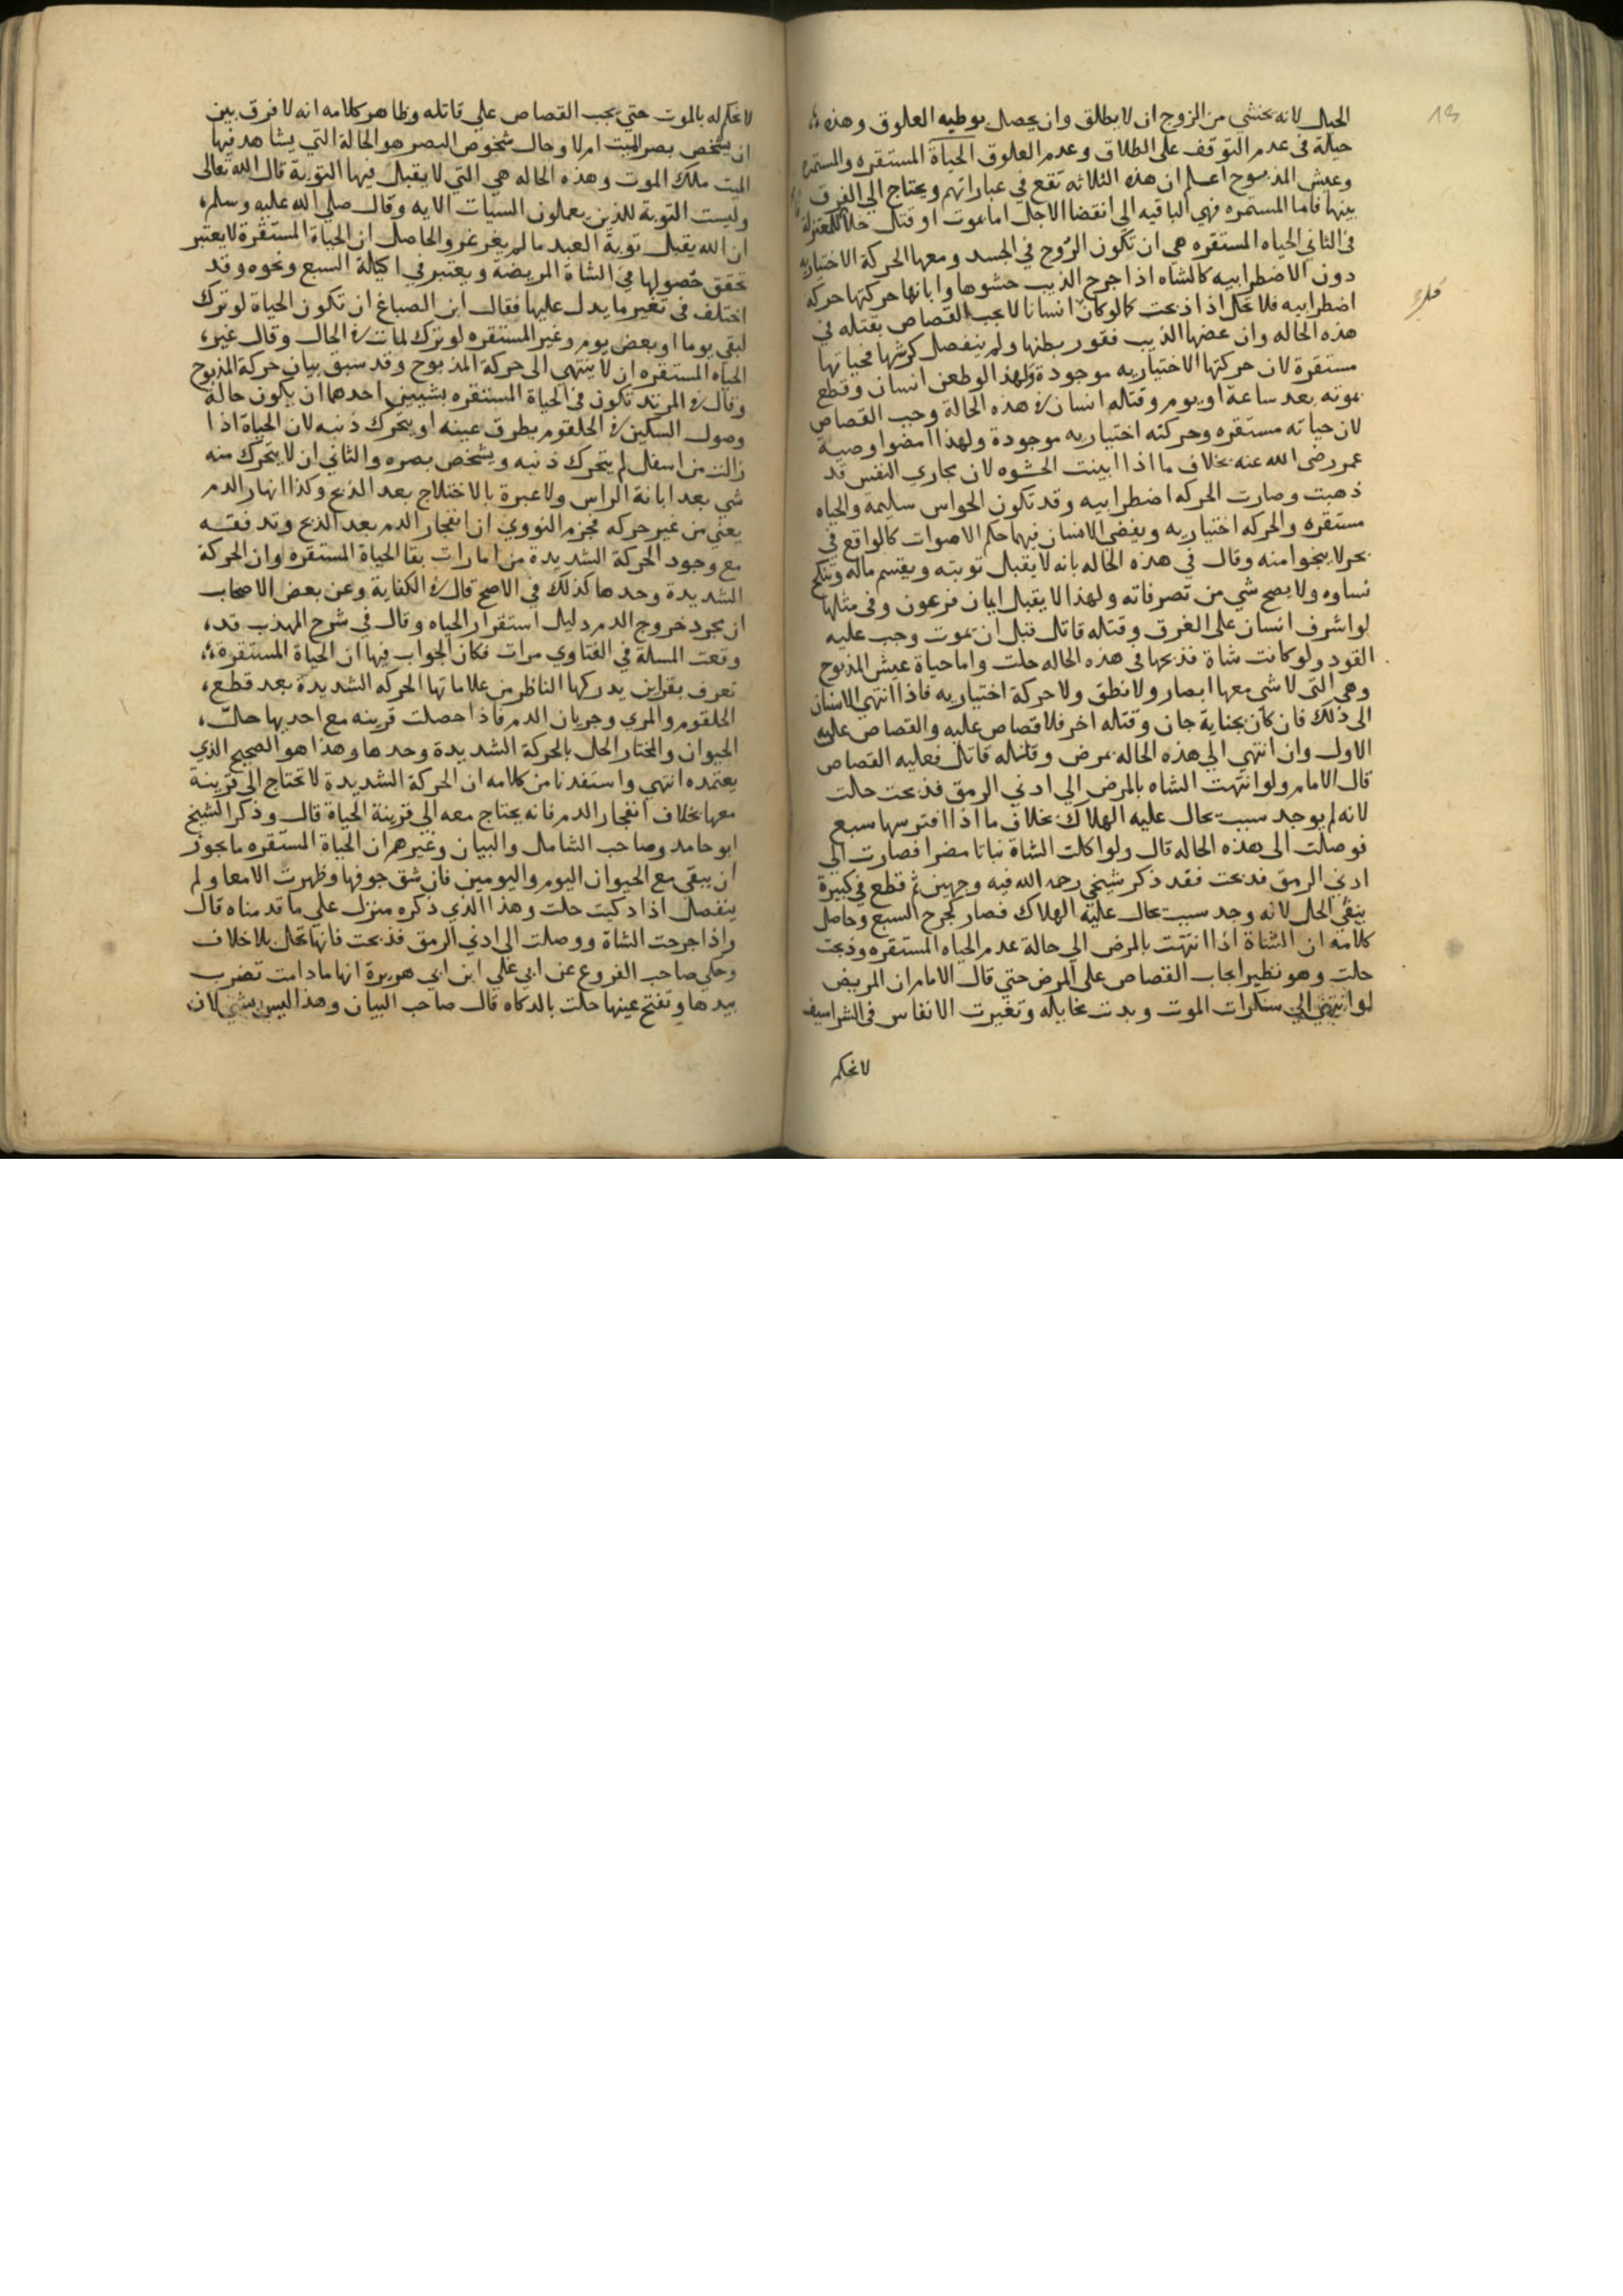 13
الحبل لانه يخشي من الزوج ان لا يطلق وان يحصل بوطيه العلوق وهذه
حيلة في عدم التوقف على الطلاق وعدم العلوق الحياة المستقره والمستمره
وعيش المذبوح اعلم ان هذه الثلاثه تقع في عباراتهم ويحتاج الي الفرق
بينها فاما المستمره فهي الباقيه الي انقضا الاجل اما بموت او قتل خلافا للمعتزلة
في الثاني الحياه المستقره هي ان تكون الروح في الجسد ومعها الحركة الاختياريه
دون الاضطرابيه كالشاه اذا جرح الذيب حشوها وابانها حركتها حركه
اضطرابيه فلا تحل اذا ذبحت كما لو كان انسانا لا يجب القصاص بقتله في
هذه الحاله وان عضها الذيب فقور بطنها ولم ينفصل كرشها فحياتها
مستقرة لان حركتها الاختياريه موجودة ولهذا لو طعن انسان وقطع
بموته بعد ساعة او يوم وقتله انسان في هذه الحالة وجب القصاص
لان حياته مستقره وحركته اختياريه موجودة ولهذا امضوا وصية
عمر رضي الله عنه بخلاف ما اذا ابينت الحشوه لان مجاري النفس قد
ذهبت وصارت الحركه اضطرابيه وقد تكون الحواس سليمة والحياه
مستقره والحركه اختياريه ويفضي الانسان فيهما حكم الاموات كالواقع في
بحر لا ينجوا منه وقال في هذه الحاله بانه لا يقبل توبته ويقسم ماله وتنكح
نساوه ولا يصح شي من تصرفاته ولهذا لا يقبل ايمان فرعون وفي مثلها
لو اشرف انسان على الغرق وقتله قاتل قبل ان يموت وجب عليه
القود ولو كانت شاة فذبحها في هذه الحاله حلت واما حياة عيش المذبوح
وهي التي لا شي معها ابصار ولا نطق ولا حركة اختياريه فاذا انتهي الانسان
الى ذلك فان كان بجناية جان وقتله اخر فلا قصاص عليه والقصاص على
الاول وان انتهي الي هذه الحاله بمرض وقتله قاتل فعليه القصاص
قال الامام ولو انتهت الشاه بالمرض الي ادني الرمق فذبحت حلت
لانه لم يوجد سبب يحال عليه الهلاك بخلاف ما اذا افترسها سبع
فوصلت الى هذه الحاله قال ولو اكلت الشاة نباتا مضرا فصارت الي
ادني الرمق فذبحت فقد ذكر شيخي رحمه الله فيه وجهين ثم قطع في كبيرة
بنفي الحل لانه وجد سبب يحال عليه الهلاك فصار كجرح السبع وحاصل
كلامه ان الشاة اذا انتهت بالمرض الي حالة عدم الحياه المستقره وذبحت
حلت وهو نظير ايجاب القصاص على المرض حتي قال الامام ان المريض
لو انتهي الي سكرات الموت وبدت مخايله وتغيرت الانفاس في الشراسيف
لا نحكم
لا نحكم له بالموت حتي يجب القصاص علي قاتله وظاهر كلامه انه لا فرق بين
ان يشخص بصر الميت ام لا وحال شخوص البصر هو الحالة التي يشاهد فيها
الميت ملك الموت وهذه الحاله هي التي لا يقبل فيها التوبة قال الله تعالى
وليست التوبة للذين يعملون السيات الايه وقال صلي الله عليه وسلم
ان الله يقبل توبة العبد ما لم يغرغر والحاصل ان الحياة المستقرة لا يعتبر
تحقق حصولها في الشاة المريضة ويعتبر في اكيلة السبع ونحوه وقد
اختلف في تغير ما يدل عليها فقال ابن الصباغ ان تكون الحياة لو ترك
لبقي يوما او بعض يوم وغير المستقره لو ترك لمات في الحال وقال غيره
الحياه المستقره ان لا ينتهي الى حركة المذبوح وقد سبق بيان حركة المذبوح
وقال في المرتد تكون في الحياة المستقره بشييين احدهما ان يكون حالة
وصول السكين في الحلقوم يطرق عينه او يتحرك ذنبه لان الحياة اذا
زالت من اسفل لم يتحرك ذنبه ويشخص بصره والثاني ان لا يتحرك منه
شي بعد ابانة الراس ولا عبرة بالاختلاج بعد الذبح وكذا انهار الدم
يعني من غير حركه فجزم النووي ان انفجار الدم بعد الذبح وتدفقه
مع وجود الحركة الشديدة من امارات بقا الحياة المستقره وان الحركة
الشديدة وحدها كذلك في الاصح قال في الكفاية وعن بعض الاصحاب
ان مجرد خروج الدم دليل استقرار الحياه وقال في شرح المهذب قد
وقعت المسلة في الفتاوي مرات فكان الجواب فيها ان الحياة المستقرة
تعرف بقراين يدركها الناظر من علاماتها الحركه الشديدة بعد قطع
الحلقوم والمري وجريان الدم فاذا حصلت قرينه مع احديهما حل
الحيوان والمختار الحل بالحركة الشديدة وحدها وهذا هو الصحيح الذي
يعتمده انتهي واستفدنا من كلامه ان الحركة الشديدة لا تحتاج الي قرينة
معها بخلاف انفجار الدم فانه يحتاج معه الي قرينة الحياة قال وذكر الشيخ
ابو حامد وصاحب الشامل والبيان وغيرهم ان الحياة المستقره ما يجوز
ان يبقي مع الحيوان اليوم واليومين فان شق جوفها وظهرت الامعا ولم
ينفصل اذا ذكيت حلت وهذا الذي ذكره منزل علي ما قدمناه قال
واذا جرحت الشاة ووصلت الى ادني الرمق فذبحت فانها تحل بلا خلاف
وحكي صاحب الفروع عن ابي علي ابن ابي هريرة انها ما دامت تضرب
بيدها وتفتح عينها حلت بالذكاه قال صاحب البيان وهذا ليس بشي لان